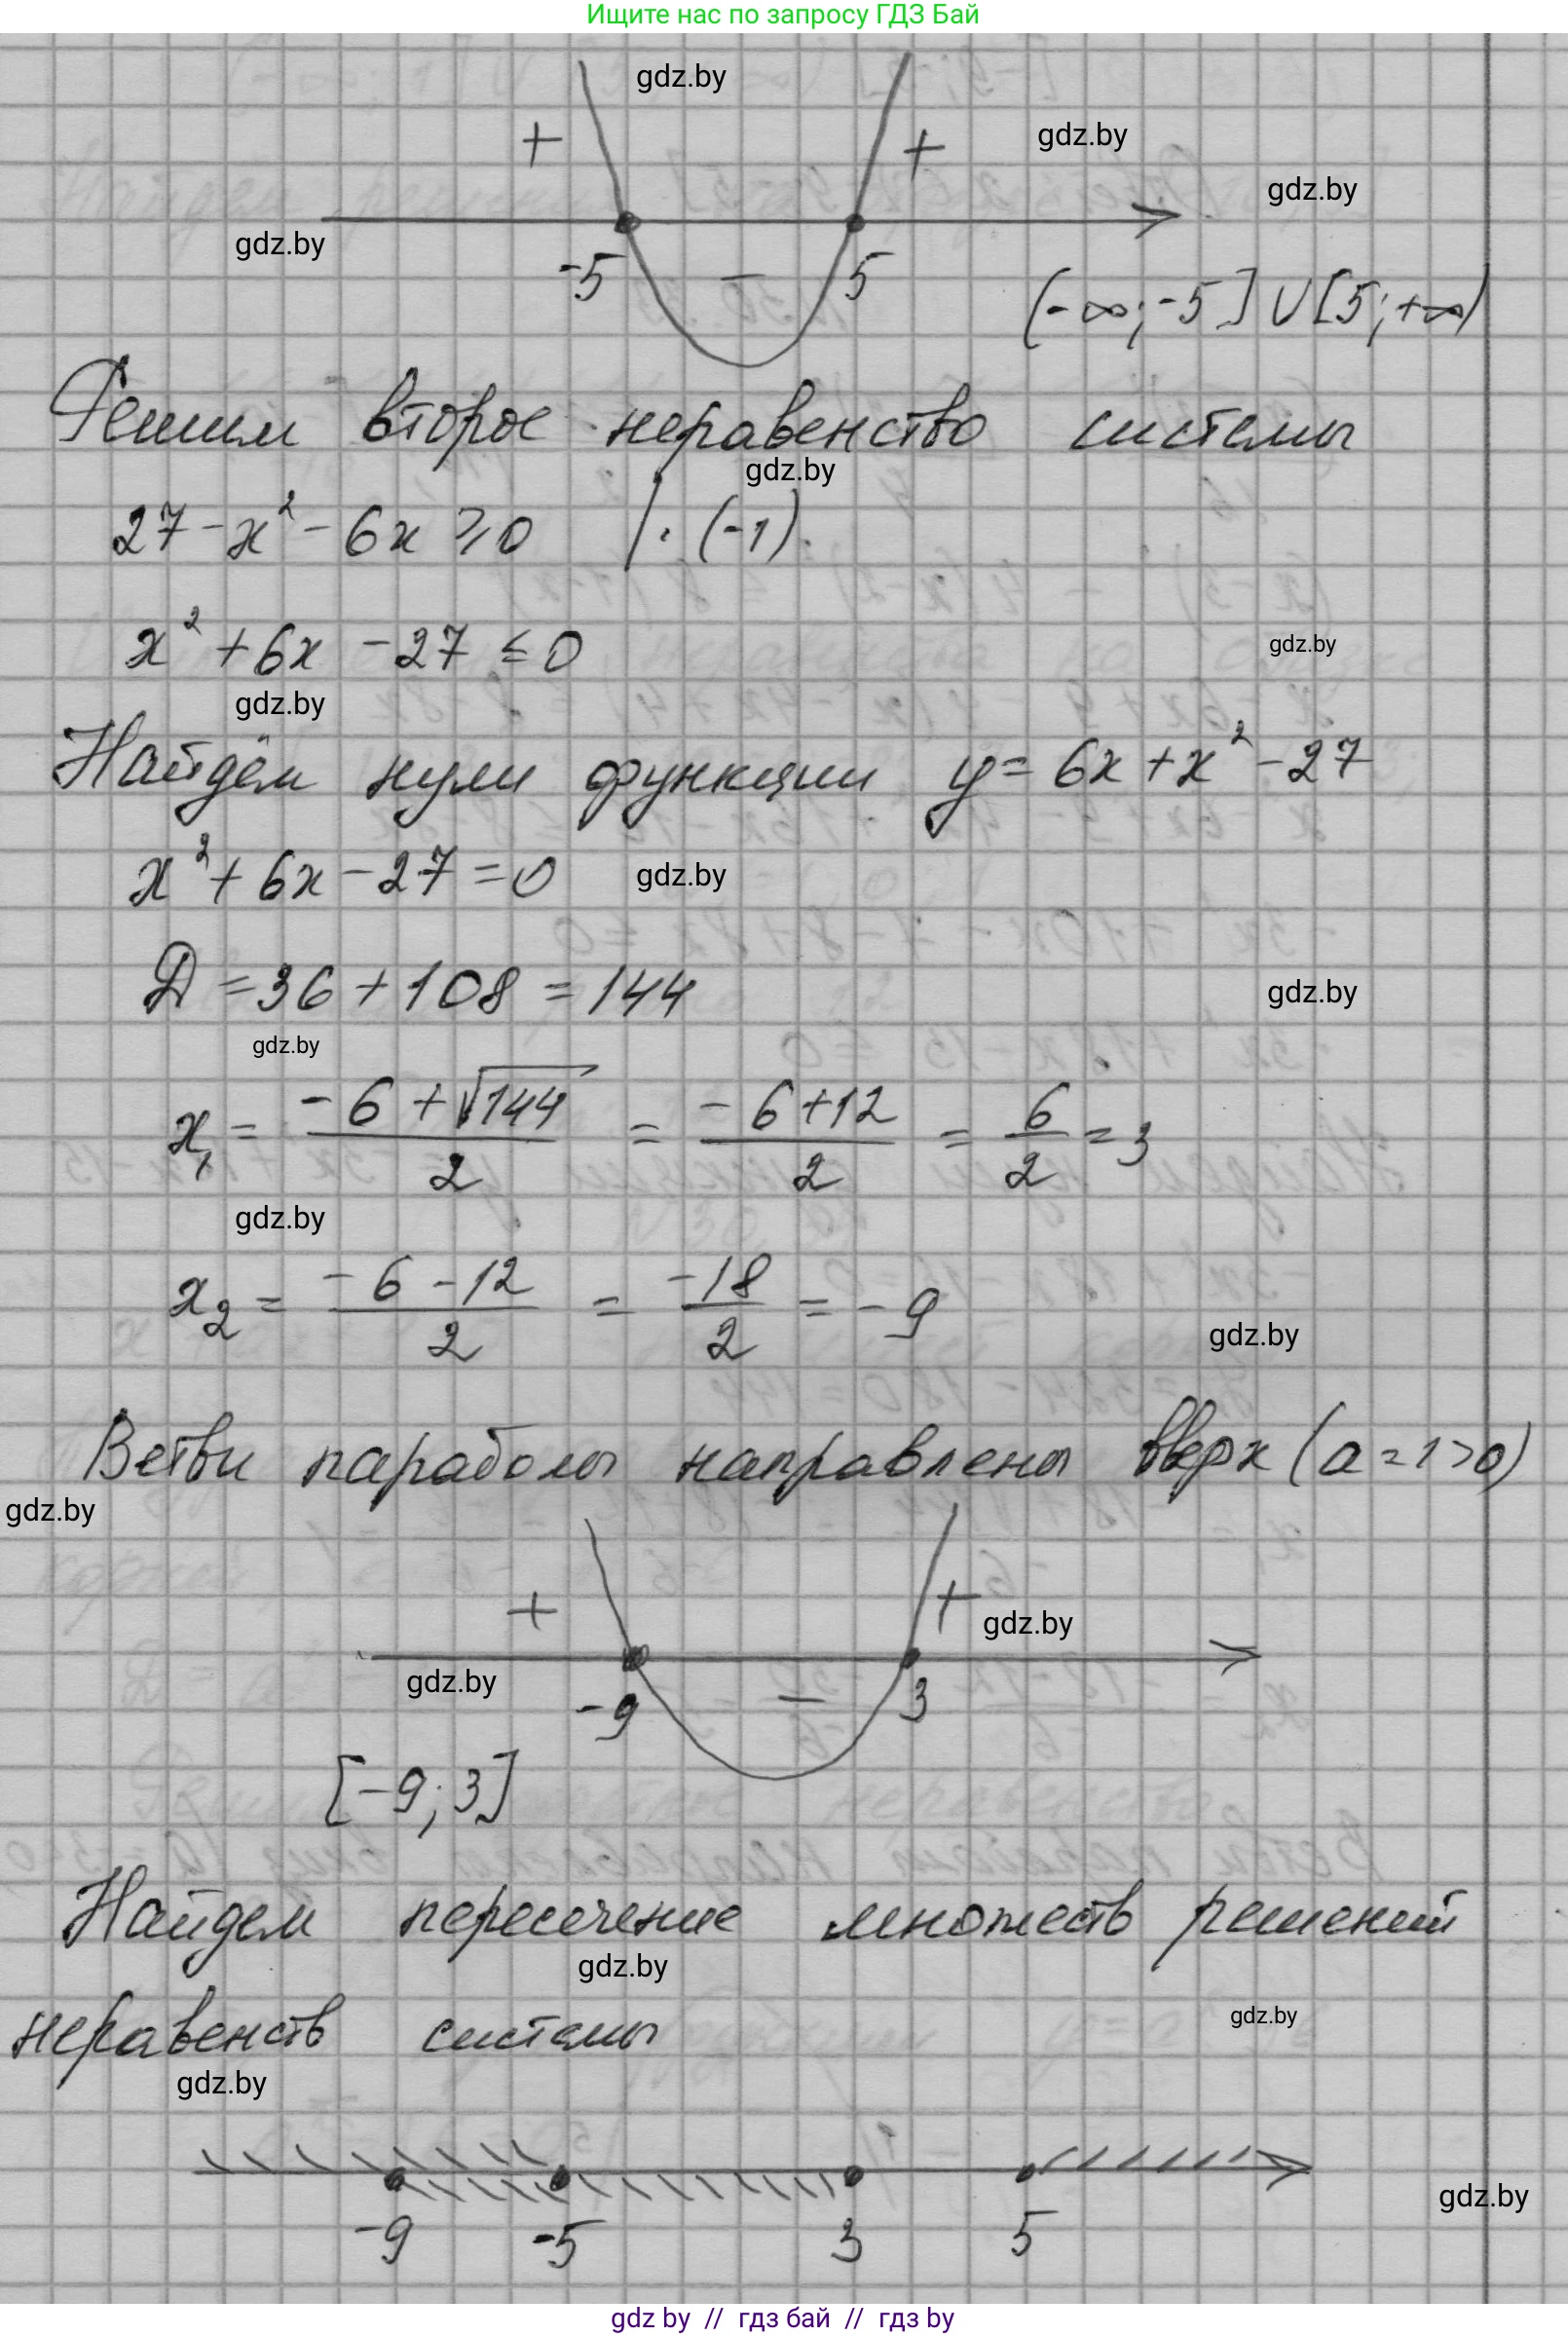 Ищите нас по запросу ГДЗ Бай
gdz.by
+ +
gdz.by
gdz.by
gdz.by
-5 - 5
(-∞; -5] ∪ [5; +∞)
Решим второе неравенство системы
gdz.by
27 - x² - 6x ⩾ 0 | · (-1)
x² + 6x - 27 ≤ 0
gdz.by
gdz.by
Найдём нули функции y = 6x + x² - 27
x² + 6x - 27 = 0
gdz.by
D = 36 + 108 = 144
gdz.by
gdz.by
x₁ = (-6 + √144)/2 = (-6 + 12)/2 = 6/2 = 3
gdz.by
x₂ = (-6 - 12)/2 = -18/2 = -9
gdz.by
Ветви параболы направлены вверх (a = 1 > 0)
gdz.by
+ +
gdz.by
gdz.by
-9 - 3
[-9; 3]
Найдем пересечение множеств решений
gdz.by
неравенств системы
gdz.by
gdz.by
gdz.by
-9 -5 3 5
gdz by // гдз бай // гдз by